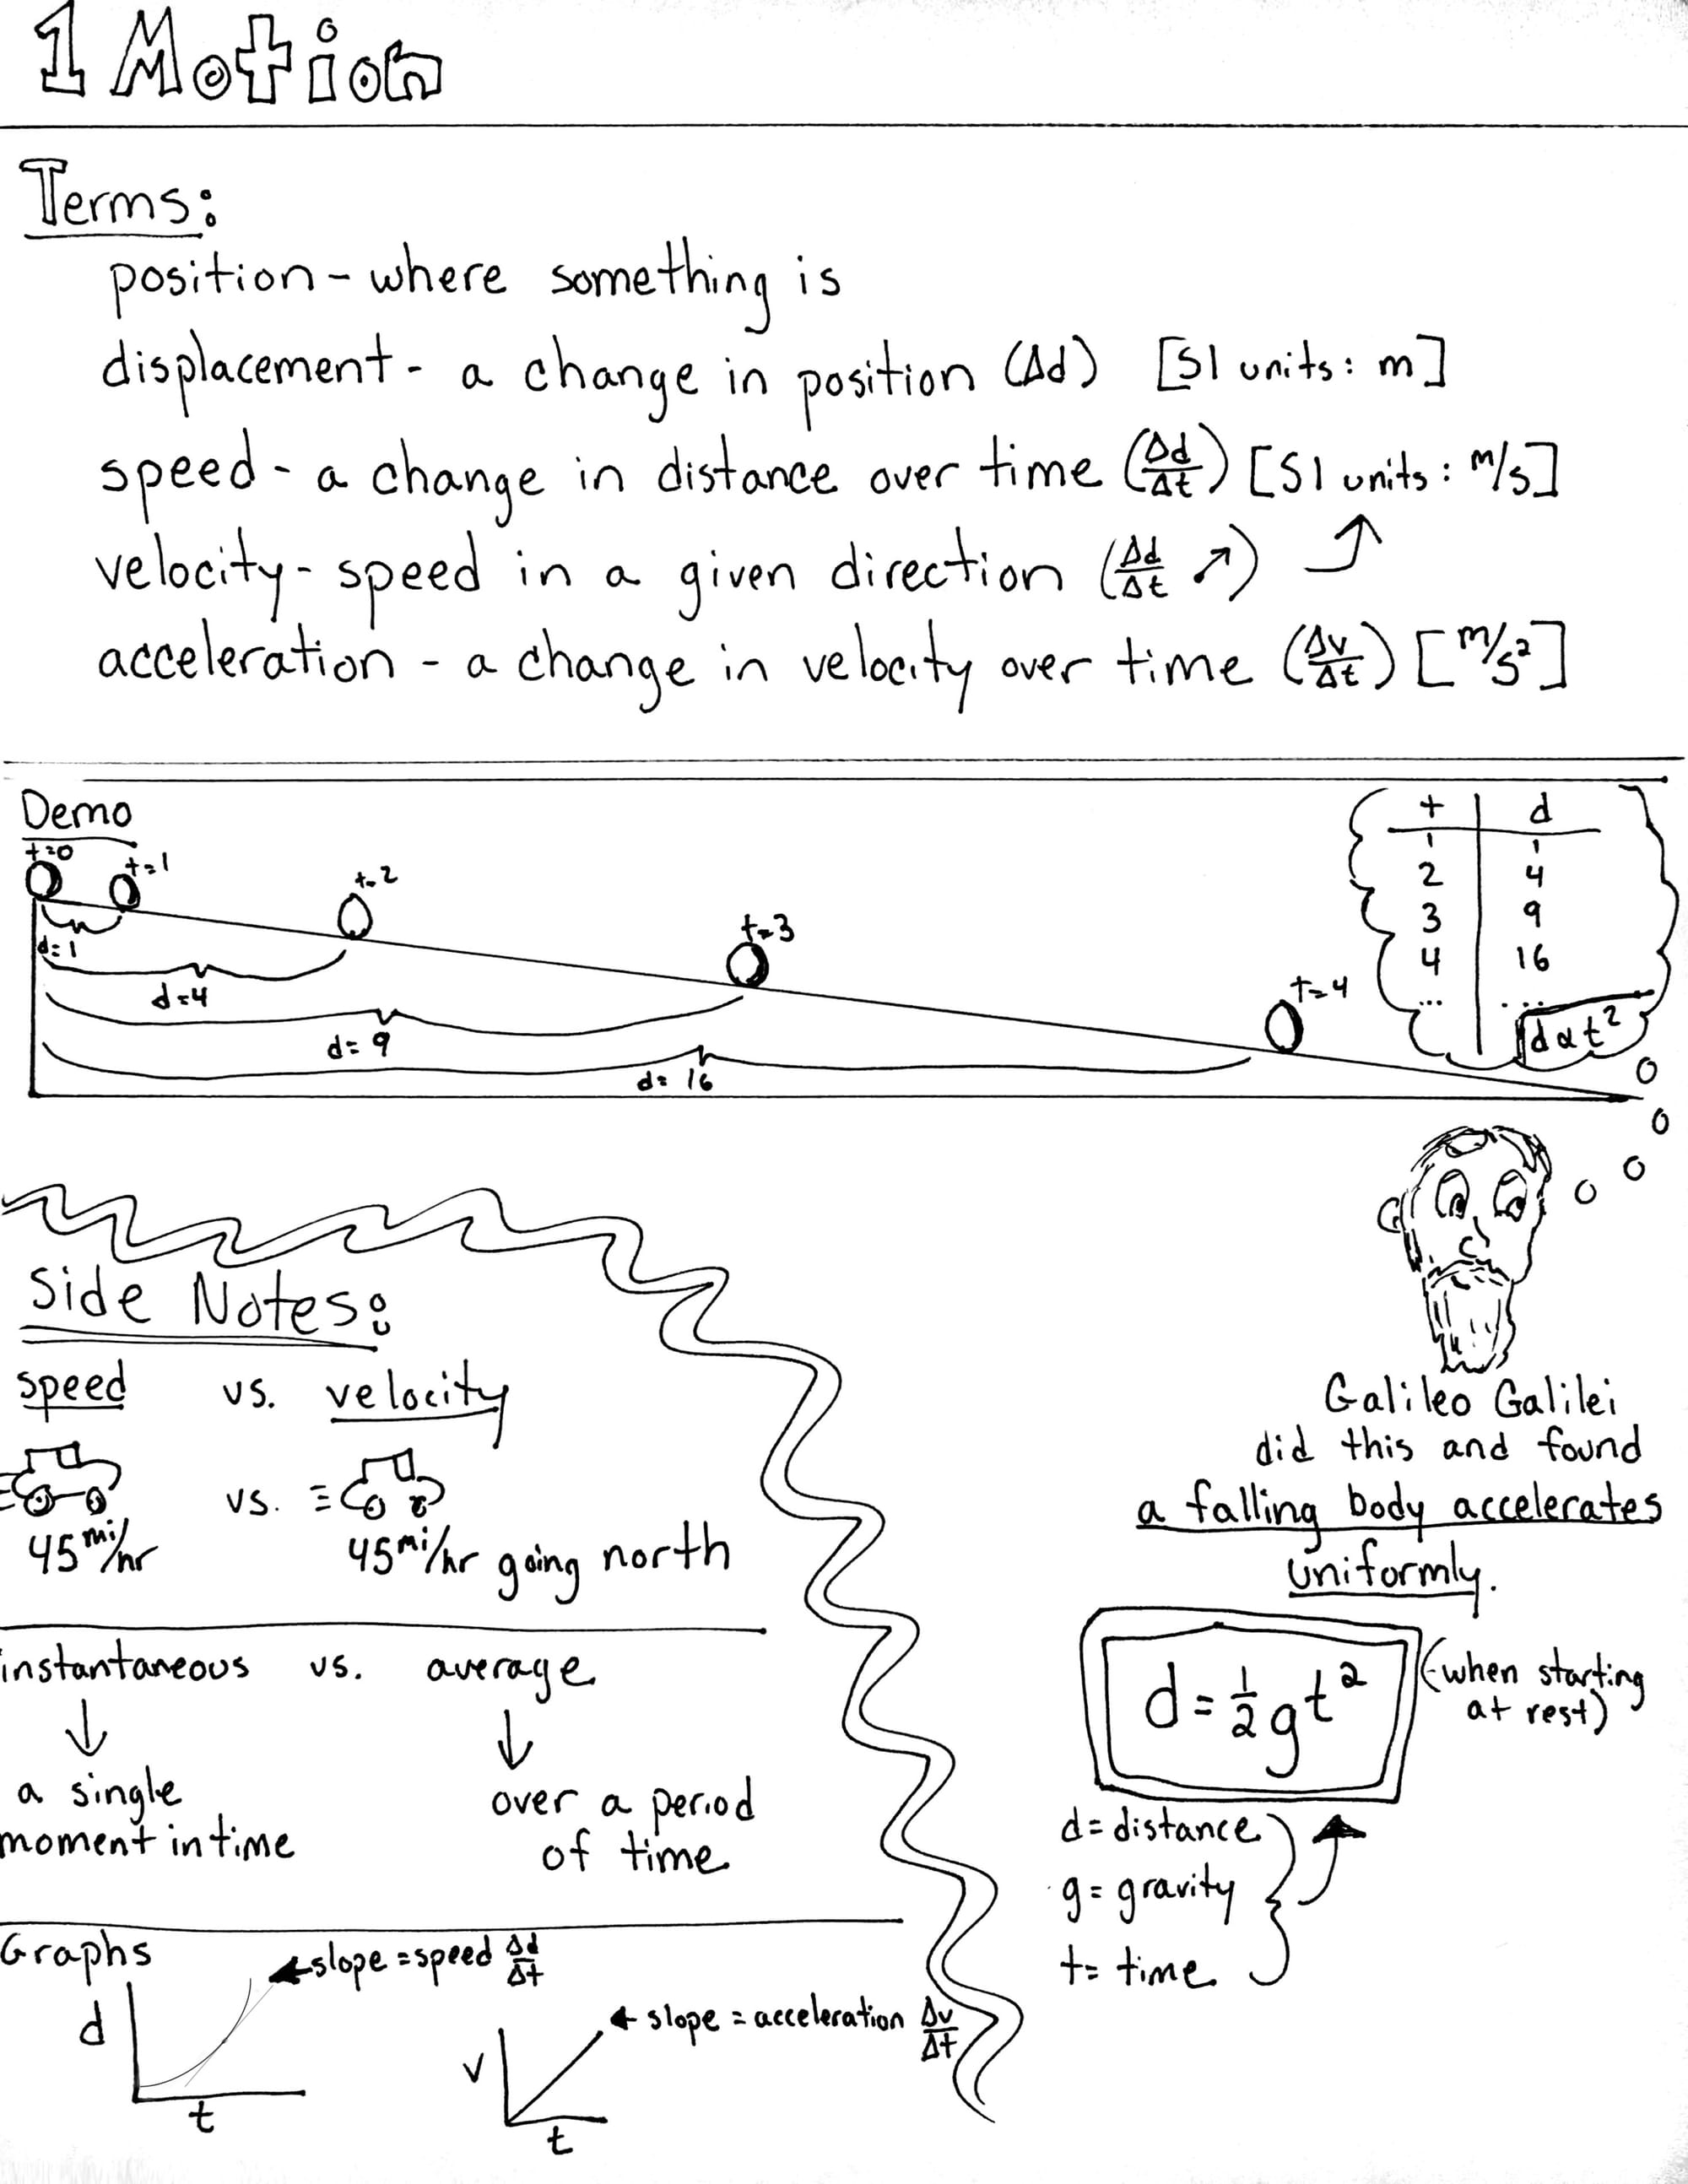 1 Motion
Terms:
position - where something is
displacement - a change in position (Δd) [SI units: m]
speed - a change in distance over time (Δd/Δt) [SI units: m/s]
velocity - speed in a given direction (Δd/Δt ↗)
acceleration - a change in velocity over time (Δv/Δt) [m/s²]
Demo
t=0
t=1
t=2
t=3
t=4
d=1
d=4
d=9
d=16
t d
1 1
2 4
3 9
4 16
... ...
d α t²
Galileo Galilei
did this and found
a falling body accelerates
uniformly.
d = ½gt²
(when starting
at rest)
d = distance
g = gravity
t = time
Side Notes:
speed vs. velocity
vs.
45 mi/hr 45 mi/hr going north
instantaneous vs. average
↓ ↓
a single
moment in time
over a period
of time
Graphs
slope = speed Δd/Δt
d
t
slope = acceleration Δv/Δt
v
t